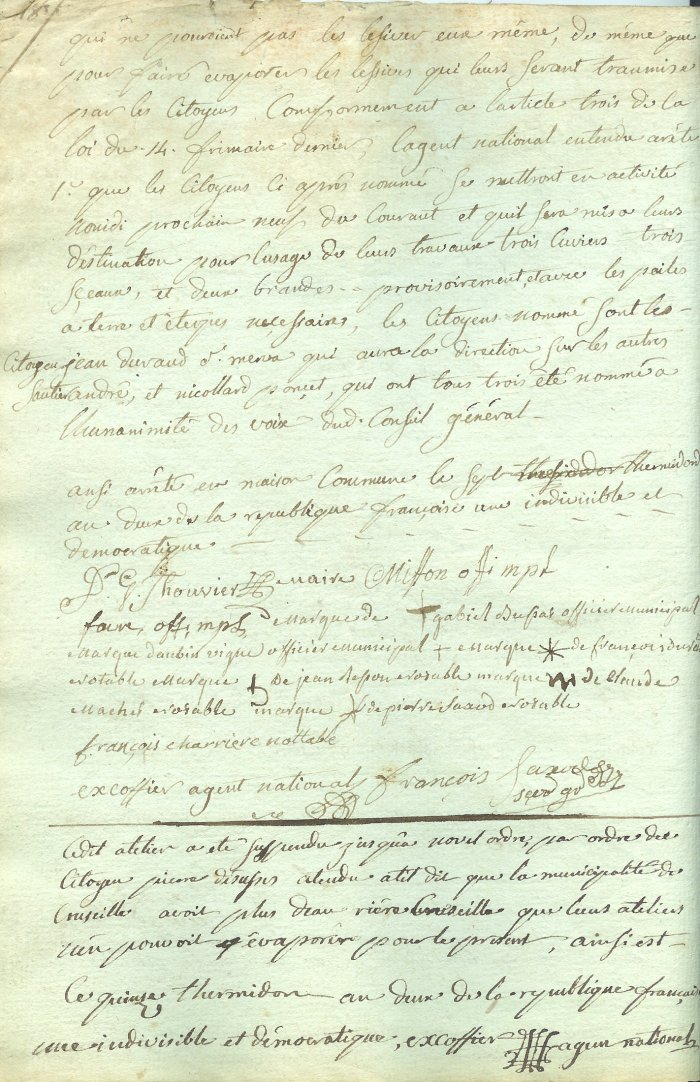 qui ne pouroient pas les lesiver eux même, de même que
pour faire evaporer les lessives qui leurs seront transmise
par les Citoyens Conformement a larticle trois de la
loi du 14. frimaire dernier, lagent national entendu arrête
1.° que les Citoyens Ci après nommé Se mettront en activité
nonidi prochain neuf du Courant et quil sera mis a leurs
déstination pour lusage de leurs travaux trois Cuviers trois
Sceaux, et deux brandes provisoirement, et avec les pailes
a terre et étezes necessaires, les Citoyens nommé sont les
Citoyens jean duvaud d.t merva qui aura la direction Sur les autres
Sautier andré, et nicollard ponçet, qui ont tous trois été nommé a
lhunanimité des voix dud. Conseil général
ansi arrêté en maison Commune le Sept thermidord
an deux de la republique françoise une indivisible et
democratique
Thouvier maire Miffon offi mpl
favre off. mpl Marque de + gabriel dussas officier Municipal
Marque daubin vigne officier Municipal + Marque * de françois
notable Marque de jean notable marque de Claude
notable marque de pierre notable
françois charriere nottable
excoffier agent national françois
Ledit atelier a eté Suspendu jusqua novel ordre, par ordre de
Citoyen piere atendu atil dit que la municipalité de
Cruseille avoit plus deau riére Cruseille que leurs ateliers
nén pouvoit évaporér pour le présent, ainsi est
Ce quinze thermidor an deux de la republique français
une indivisible et démocratique, excoffier agent national